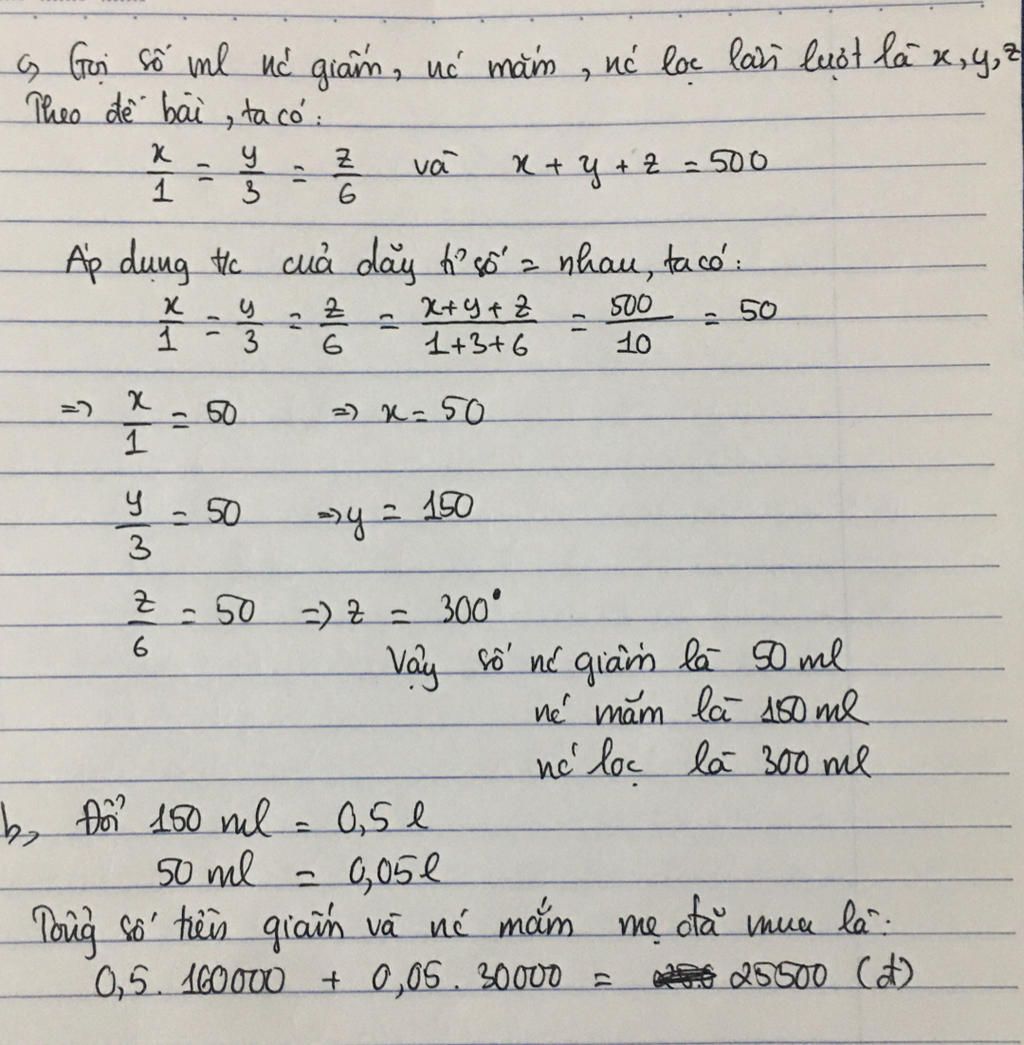 a, Gọi số ml nć giấm, nć mắm, nć lọc lần lượt là x, y, z
Theo đề bài, ta có:
x/1 = y/3 = z/6 và x + y + z = 500
Áp dụng t/c của dãy tỉ số = nhau, ta có:
x/1 = y/3 = z/6 = x+y+z/1+3+6 = 500/10 = 50
=> x/1 = 50 => x = 50
y/3 = 50 => y = 150
z/6 = 50 => z = 300
Vậy số nć giấm là 50 ml
nć mắm là 150 ml
nć lọc là 300 ml
b, Đổi 150 ml = 0,5 l
50 ml = 0,05 l
Tổng số tiền giấm và nć mắm mẹ đã mua là:
0,5. 160000 + 0,05. 30000 = 25500 (đ)